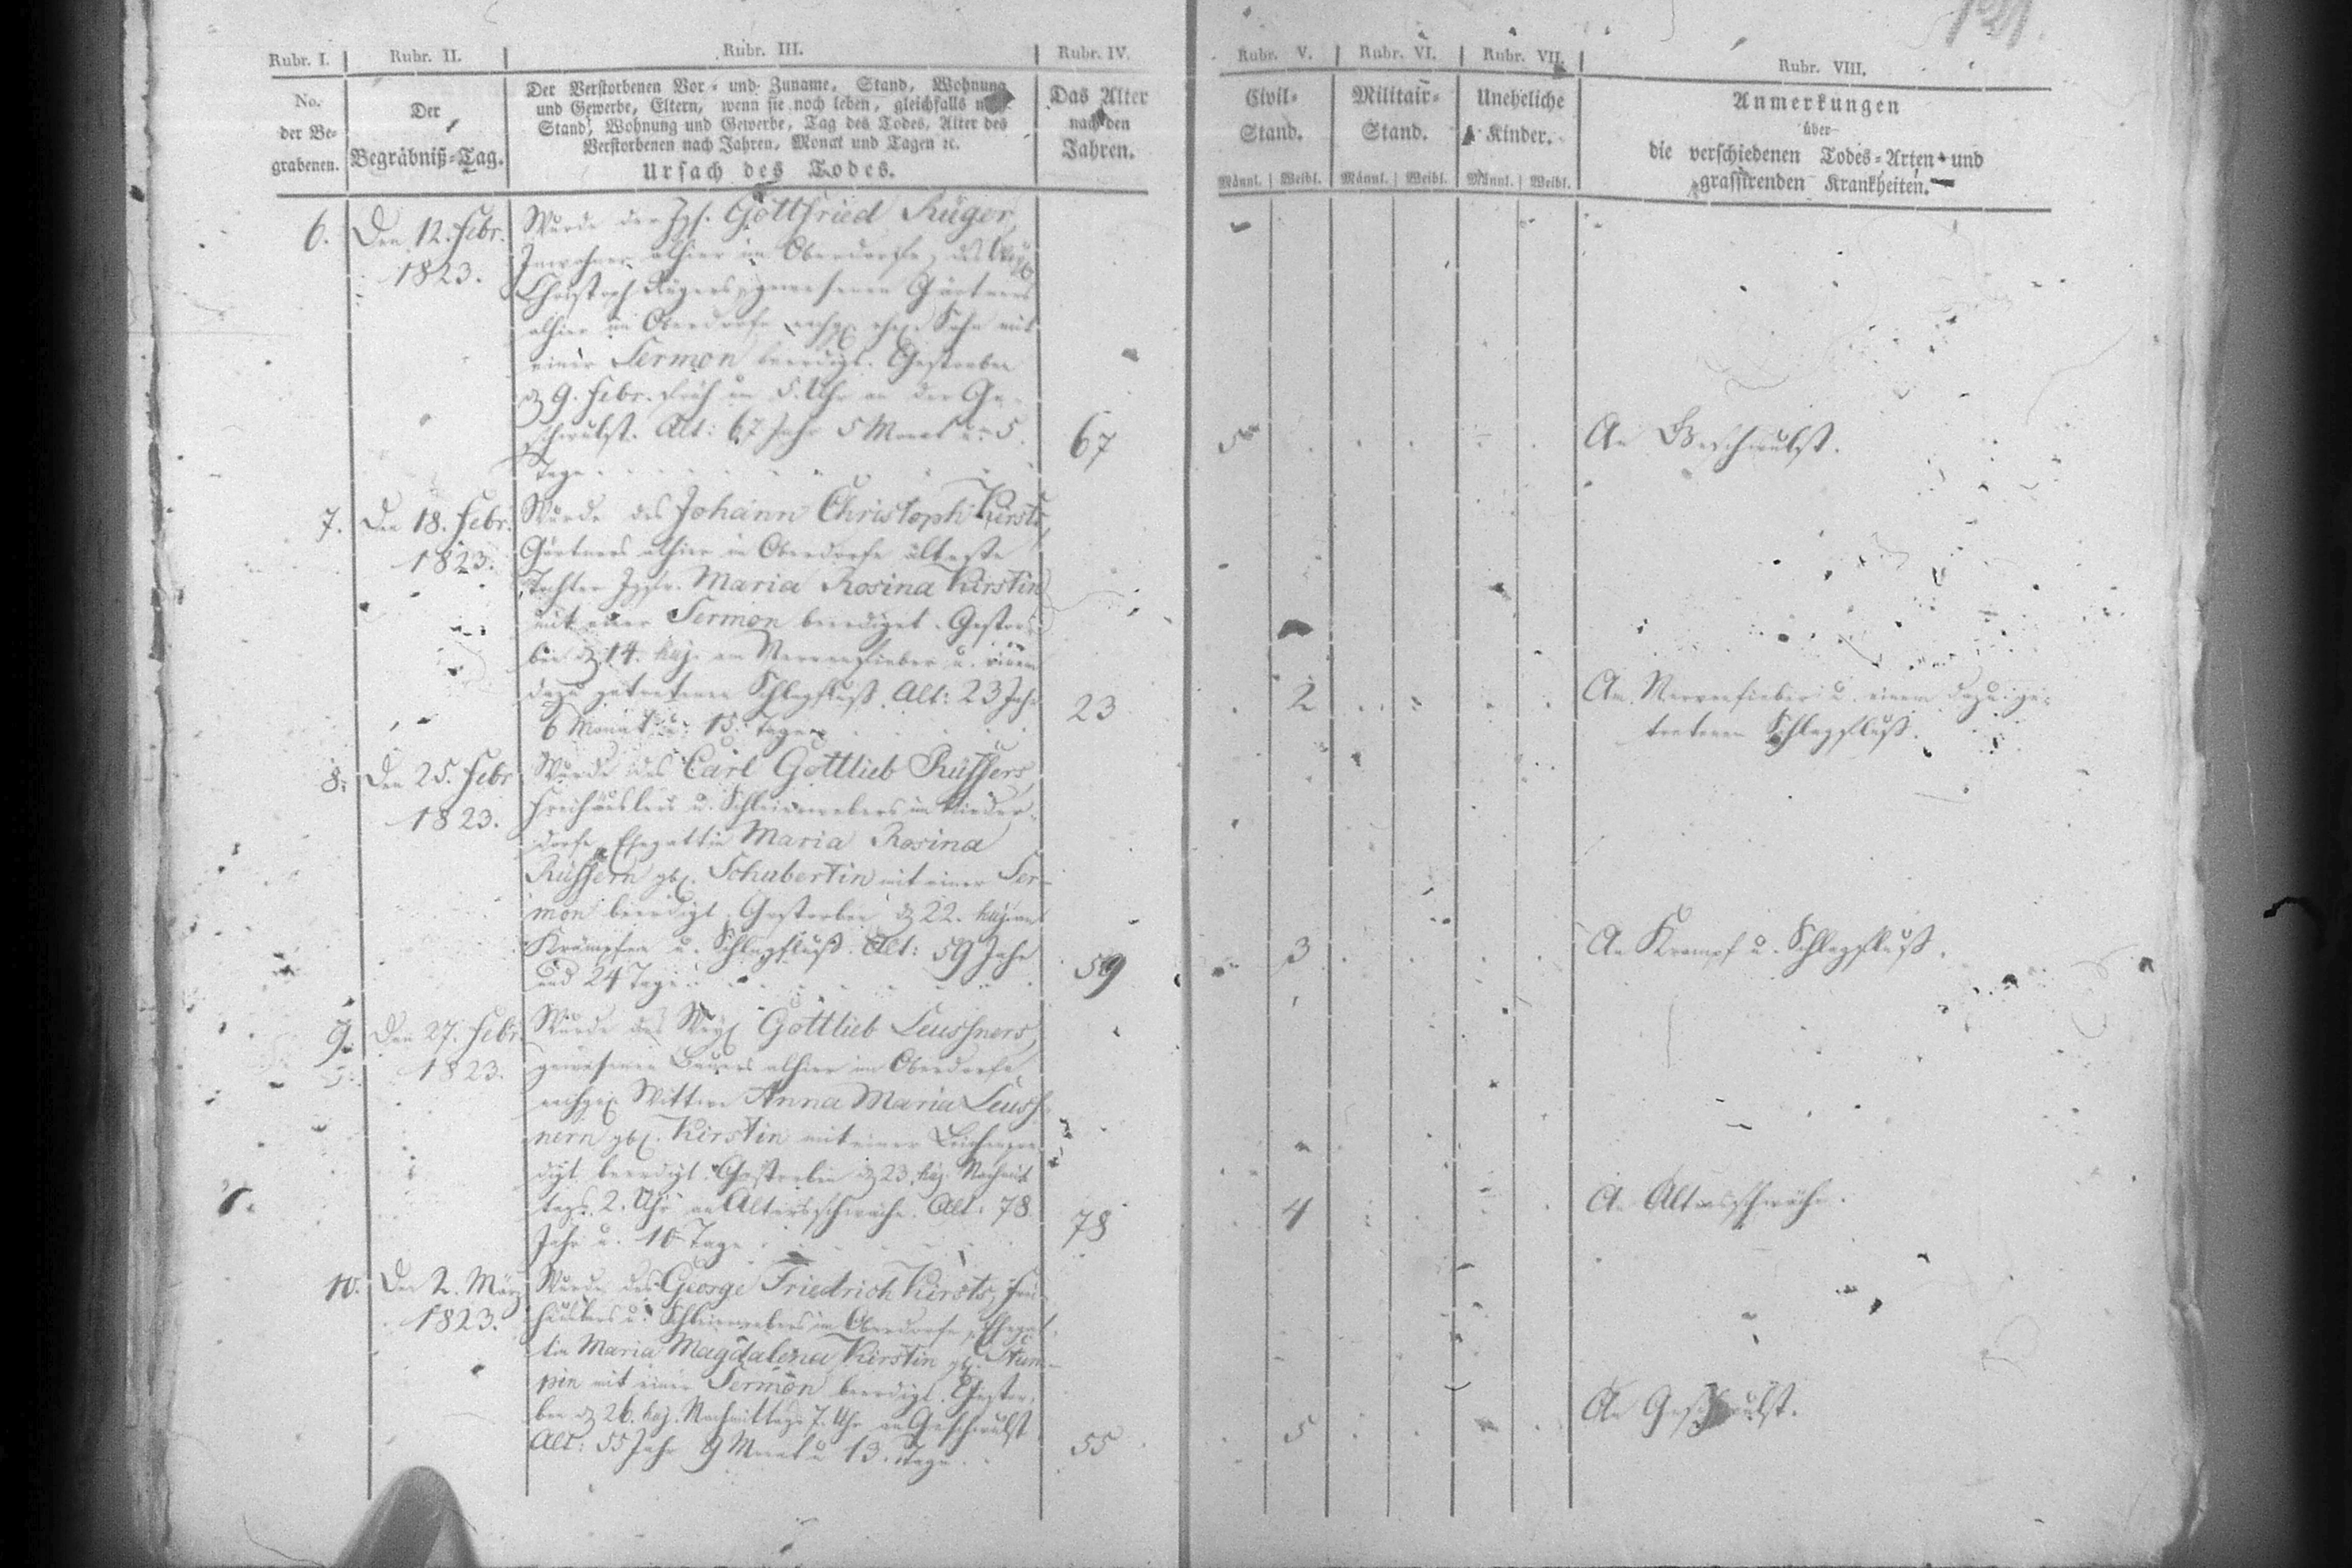 Rubr. I. | Rubr. II. | Rubr. III. | Rubr. IV. | Rubr. V. | Rubr. VI. | Rubr. VII. | Rubr. VIII.
No. der Be-grabenen.
Der Begräbniß-Tag.
Der Verstorbenen Vor- und Zuname, Stand, Wohnung
und Gewerbe, Eltern, wenn sie noch leben, gleichfalls
Stand, Wohnung und Gewerbe, Tag des Todes, Alter des
Verstorbenen nach Jahren, Monat und Tagen ec.
Ursach des Todes.
Das Alter nach den Jahren.
Civil-Stand.
Militair-Stand.
Uneheliche Kinder.
Männl. | Weibl. Männl. | Weibl. Männl. | Weibl.
Anmerkungen
über
die verschiedenen Todes-Arten und
grassirenden Krankheiten.
6. Den 12. Febr. 1823.
Wurde der Jgs. Gottfried Rüger,
Inwohner alhier im Oberdorfe, des
Christoph Rügers, gewesenen Gärtners
alhier im Oberdorfe Sohn mit
einer Sermon beerdigt. Gestorben
9. Febr. früh um 5. Uhr an der Ge-
schwulst. Alt: 67 Jahr 5 Monat u. 5
Tage
67
5
An Geschwulst.
7. Den 18. Febr. 1823.
Wurde des Johann Christoph Kirsts,
Gärtners alhier in Oberdorfe älteste
Tochter Jgfr. Maria Rosina Kirstin
mit einer Sermon beerdiget. Gestor-
ben 14. huj. am Nervenfieber u. einem
dazu getretenen Schlagfluß. Alt: 23 Jahr
6 Monat u. 15. Tage
23
2
An Nervenfieber u. einem dazu ge-
tretenen Schlagfluß.
8. Den 25. Febr 1823.
Wurde des Carl Gottlieb Rüffers,
Freihäuslers u. Schleierwebers im Nieder-
dorfe, Ehegattin Maria Rosina
Rüffern gb. Schubertin mit einer Ser-
mon beerdigt. Gestorben 22. huj. an
Krämpfen u. Schlagfluß. Alt: 59 Jahr
und 24 Tage
59
3
An Krampf u. Schlagfluß.
9. Den 27. Febr. 1823.
Wurde des Gottlieb Leussners,
gewesenen Bauers alhier im Oberdorfe
Wittwe Anna Maria Leuss-
nern gb. Kirstin mit einer Leichenpre-
digt beerdigt. Gestorben 23. huj. Nachmit
tags 2. Uhr an Altersschwäche. Alt: 78
Jahr u. 10 Tage
78
4
An Altersschwäche.
10. Den 2. März 1823.
Wurde des George Friedrich Kirsts, Frei-
häuslers u. Schleierwebers im Oberdorfe, Ehegat-
tin Maria Magdalena Kirstin gb. Stum-
pin mit einer Sermon beerdigt. Gestor-
ben 26. huj. Nachmittags 7. Uhr an Geschwulst
Alt: 55 Jahr 9 Monat u 13. Tage
55
5
An Geschwulst.